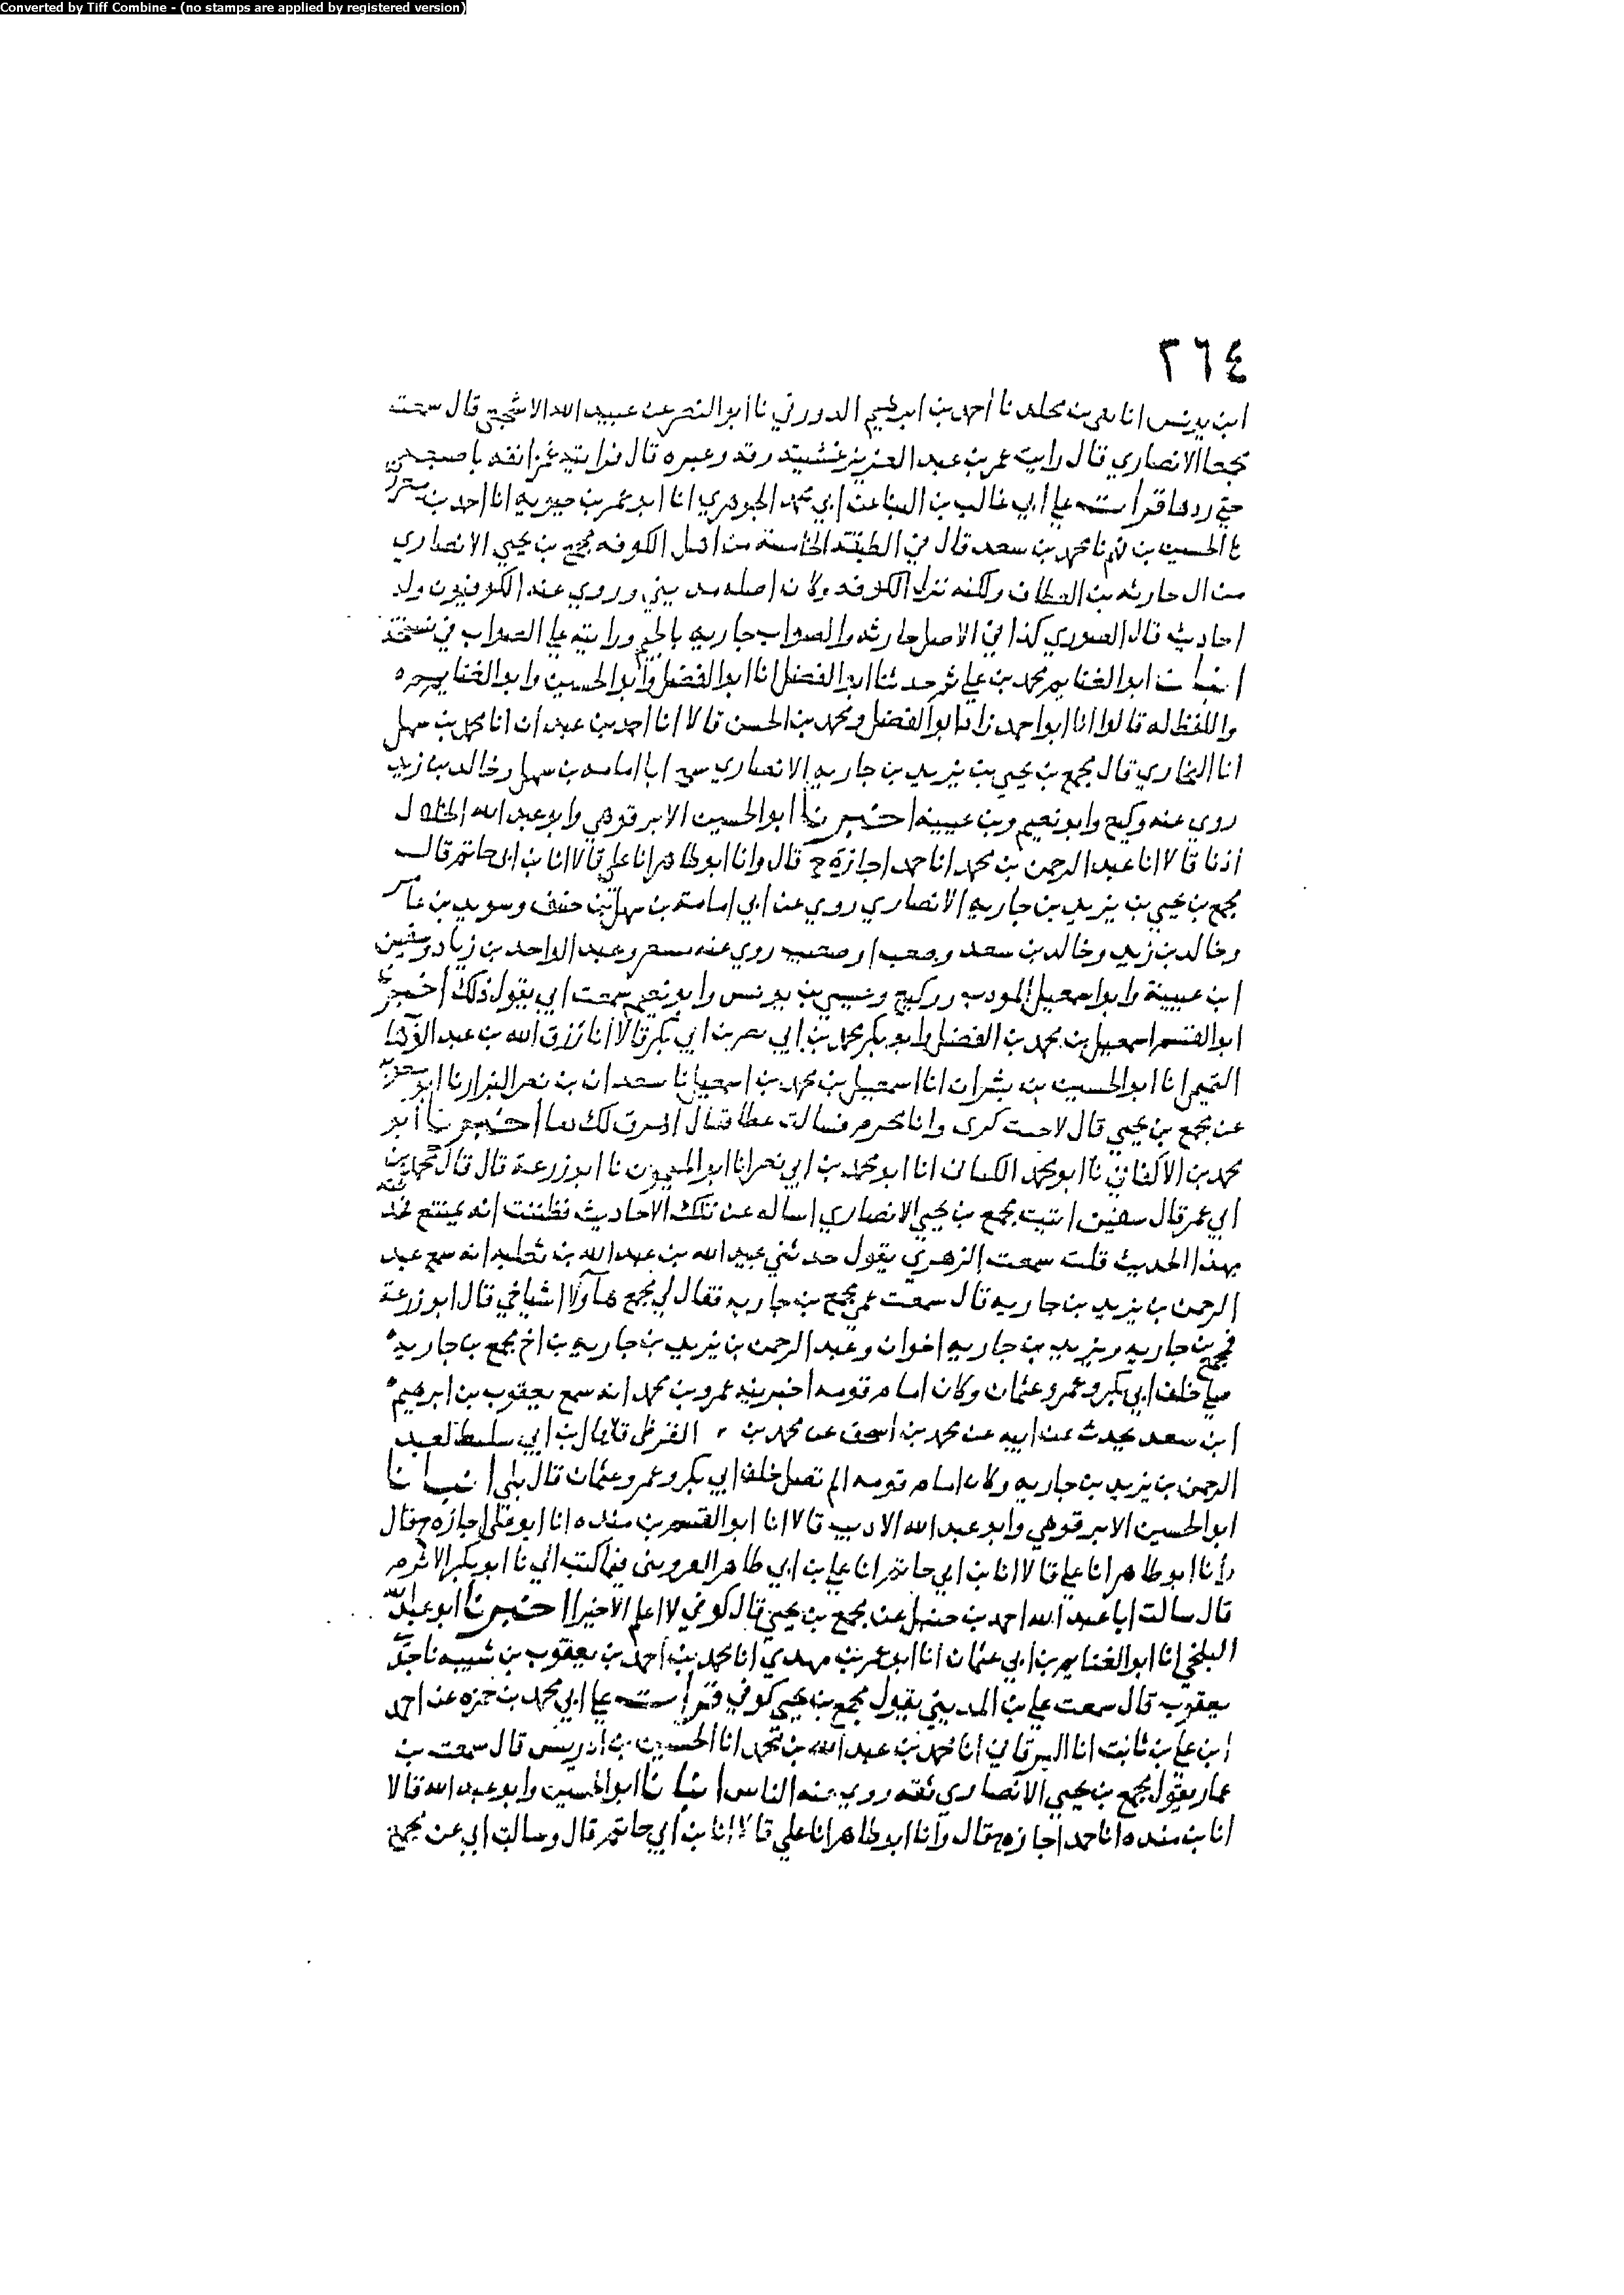 Converted by Tiff Combine - (no stamps are applied by registered version)
٢٦٤
ابن يونس انا بقي بن مخلد نا أحمد بن ابرهيم الدورقي نا أبو النضر عن عبيد الله الاشجعي قال سمعت
مجمعا الانصاري قال رايت عمر بن عبد العزيز غشيته رقه وعبره قال فرايته غمز انفه باصبعين
حتى ردها قرأت على أبي غالب بن البنا عن ابي محمد الجوهري انا ابو عمر بن حيويه انا احمد بن معروف
نا الحسين بن فهم نا محمد بن سعد قال في الطبقة الخامسة من اهل الكوفه مجمع بن يحيي الانصاري
من ال حارثه بن العطاف ولكنه نزل الكوفه وكان اصله مديني وروي عنه الكوفيون وله
احاديث قال الصوري كذا في الاصل حارثه والصواب جاريه بالجيم ورايته علي الصواب في نسخة
انبأنا ابو الغنايم محمد بن علي ثم حدثنا ابو الفضل انا ابو الفضل وأبو الحسين وابو الغنايم
واللفظ له قالوا انا ابو احمد زاد ابو الفضل ومحمد بن الحسن قالا انا احمد بن عبدان انا محمد بن سهل
انا البخاري قال مجمع بن يحيي بن يزيد بن جاريه الانصاري سمع ابا امامه بن سهل وخالد بن زيد
روي عنه وكيع وابو نعيم وبن عيينه اخبرنا ابو الحسين الابرقوهي وابو عبد الله الخلال
اذنا قالا انا عبد الرحمن بن محمد انا حمد اجازة ح قال وانا ابو طاهر انا علي قالا انا بن ابي حاتم قال
مجمع بن يحيي بن يزيد بن جاريه الانصاري روي عن ابي امامة بن سهل بن حنيف وسويد بن عامر
وخالد بن زيد وخالد بن سعد روي عنه مسعر وعبد الواحد بن زياد وسفين
ابن عيينة وابو اسمعيل المودب ووكيع وعيسي بن يونس وابو نعيم سمعت ابي يقول ذلك اخبرنا
ابو القسم اسمعيل بن محمد بن الفضل وابو بكر محمد بن ابي نصر بن ابي بكر قالا أنا رزق الله بن عبد الوهاب
التميمي انا ابو الحسين بن بشران انا اسمعيل بن محمد بن اسمعيل نا سعدان بن نصر البزار نا ابو معوية
عن مجمع بن يحيي قال وانا محرم فسالت عطا فقال اخبرنا ابو
محمد بن الاكفاني نا ابو محمد الكتاني انا ابو محمد بن ابي نصر انا ابو الميمون نا ابو زرعة قال قال محمد بن
ابي عمر قال سفين اتيت مجمع بن يحيي الانصاري اساله عن تلك الاحاديث فظننت انه يمتنع فحدثته
بهذا الحديث قلت سمعت الزهري يقول حدثني عبيد الله بن عبد الله بن ثعلبه انه سمع عبد
الرحمن بن يزيد بن جاريه قال سمعت عمي مجمع بن جاريه فقال لي مجمع هاولا اشياخي قال ابو زرعة
فمجمع بن جاريه ويزيد بن جاريه اخوان وعبد الرحمن بن يزيد بن جاريه بن اخ مجمع بن جاريه
صلي خلف ابي بكر وعمر وعثمان وكان امام قومه اخبرنيه عمرو بن محمد انه سمع يعقوب بن ابرهيم
ابن سعد يحدث عن ابيه عن محمد بن اسحق عن محمد بن القرظي قال قال بن ابي سليط لعبد
الرحمن بن يزيد بن جاريه وكان امام قومه الم تصل خلف ابي بكر وعمر وعثمان قال بلي انبانا
ابو الحسين الابرقوهي وابو عبد الله الاديب قالا انا ابو القسم بن منده انا ابو علي اجازه ح قال
وأنا ابو طاهر انا علي قالا انا بن ابي حاتم انا علي بن ابي طاهر القزويني فيما كتب الي نا ابو بكر الاثرم
قال سالت ابا عبد الله احمد بن حنبل عن مجمع بن يحيي قال كوفي لا اعلم الا خيرا اخبرنا أبو عبد الله
البلخي انا ابو الغنايم بن ابي عثمان انا ابو عمر بن مهدي انا محمد بن أحمد بن يعقوب بن شيبه نا جدي
يعقوب قال سمعت علي بن المديني يقول مجمع بن يحيي كوفي قرأت علي ابي محمد بن حمزه عن احمد
ابن علي بن ثابت انا البرقاني انا محمد بن عبد الله بن محمد انا الحسين بن ادريس قال سمعت بن
عمار يقول مجمع بن يحيي الانصاري ثقه روي عنه الناس انبانا ابو الحسين وابو عبد الله قالا
انا بن منده انا حمد اجازه ح قال وأنا ابو طاهر انا علي قالا انا بن أبي حاتم قال وسالت ابي عن مجمع